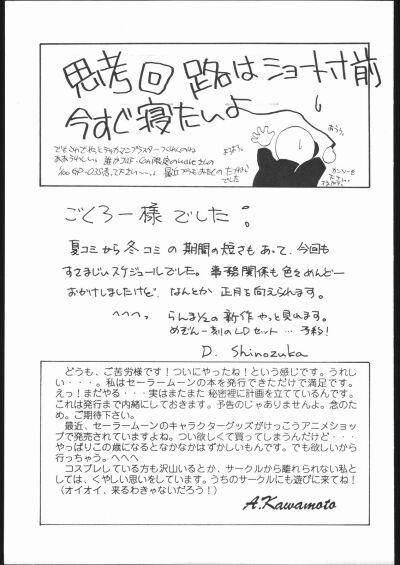 思考回路はショート寸前
今すぐ寝たいよ
おおうれしい。
最近
でした
ごくろー様でした!
夏コミから冬コミの期間の短さもあって、今回も
すさまじいスケジュールでした。事務関係も色々めんどー
おかけしましたけど、なんとか正月を向えられます。
へへへっ らんま1/2の新作やっと見れます。
めぞん一刻のLDセット…予約!
D. Shinozuka
どうも、ご苦労様です!ついにやったね!という感じです。うれし
い・・・。私はセーラームーンの本を発行できただけで満足です。
えっ!まだやる・・・実はまたまた秘密裡に計画を立てているんです。
これは発行まで内緒にしておきます。予告のじゃありませんよ。念のた
め。ご期待下さい。
最近、セーラームーンのキャラクターグッズがけっこうアニメショッ
プで発売されていますよね。つい欲しくて買ってしまうんだけど・・・
やっぱりこの歳になるとなかなかはずかしいもんです。でも欲しいから
行っちゃう。へへへ
コスプレしている方も沢山いるとか、サークルから離れられない私と
しては、くやしい思いをしています。うちのサークルにも遊びに来てね!
(オイオイ、来るわきゃないだろう!)
A.Kawamoto